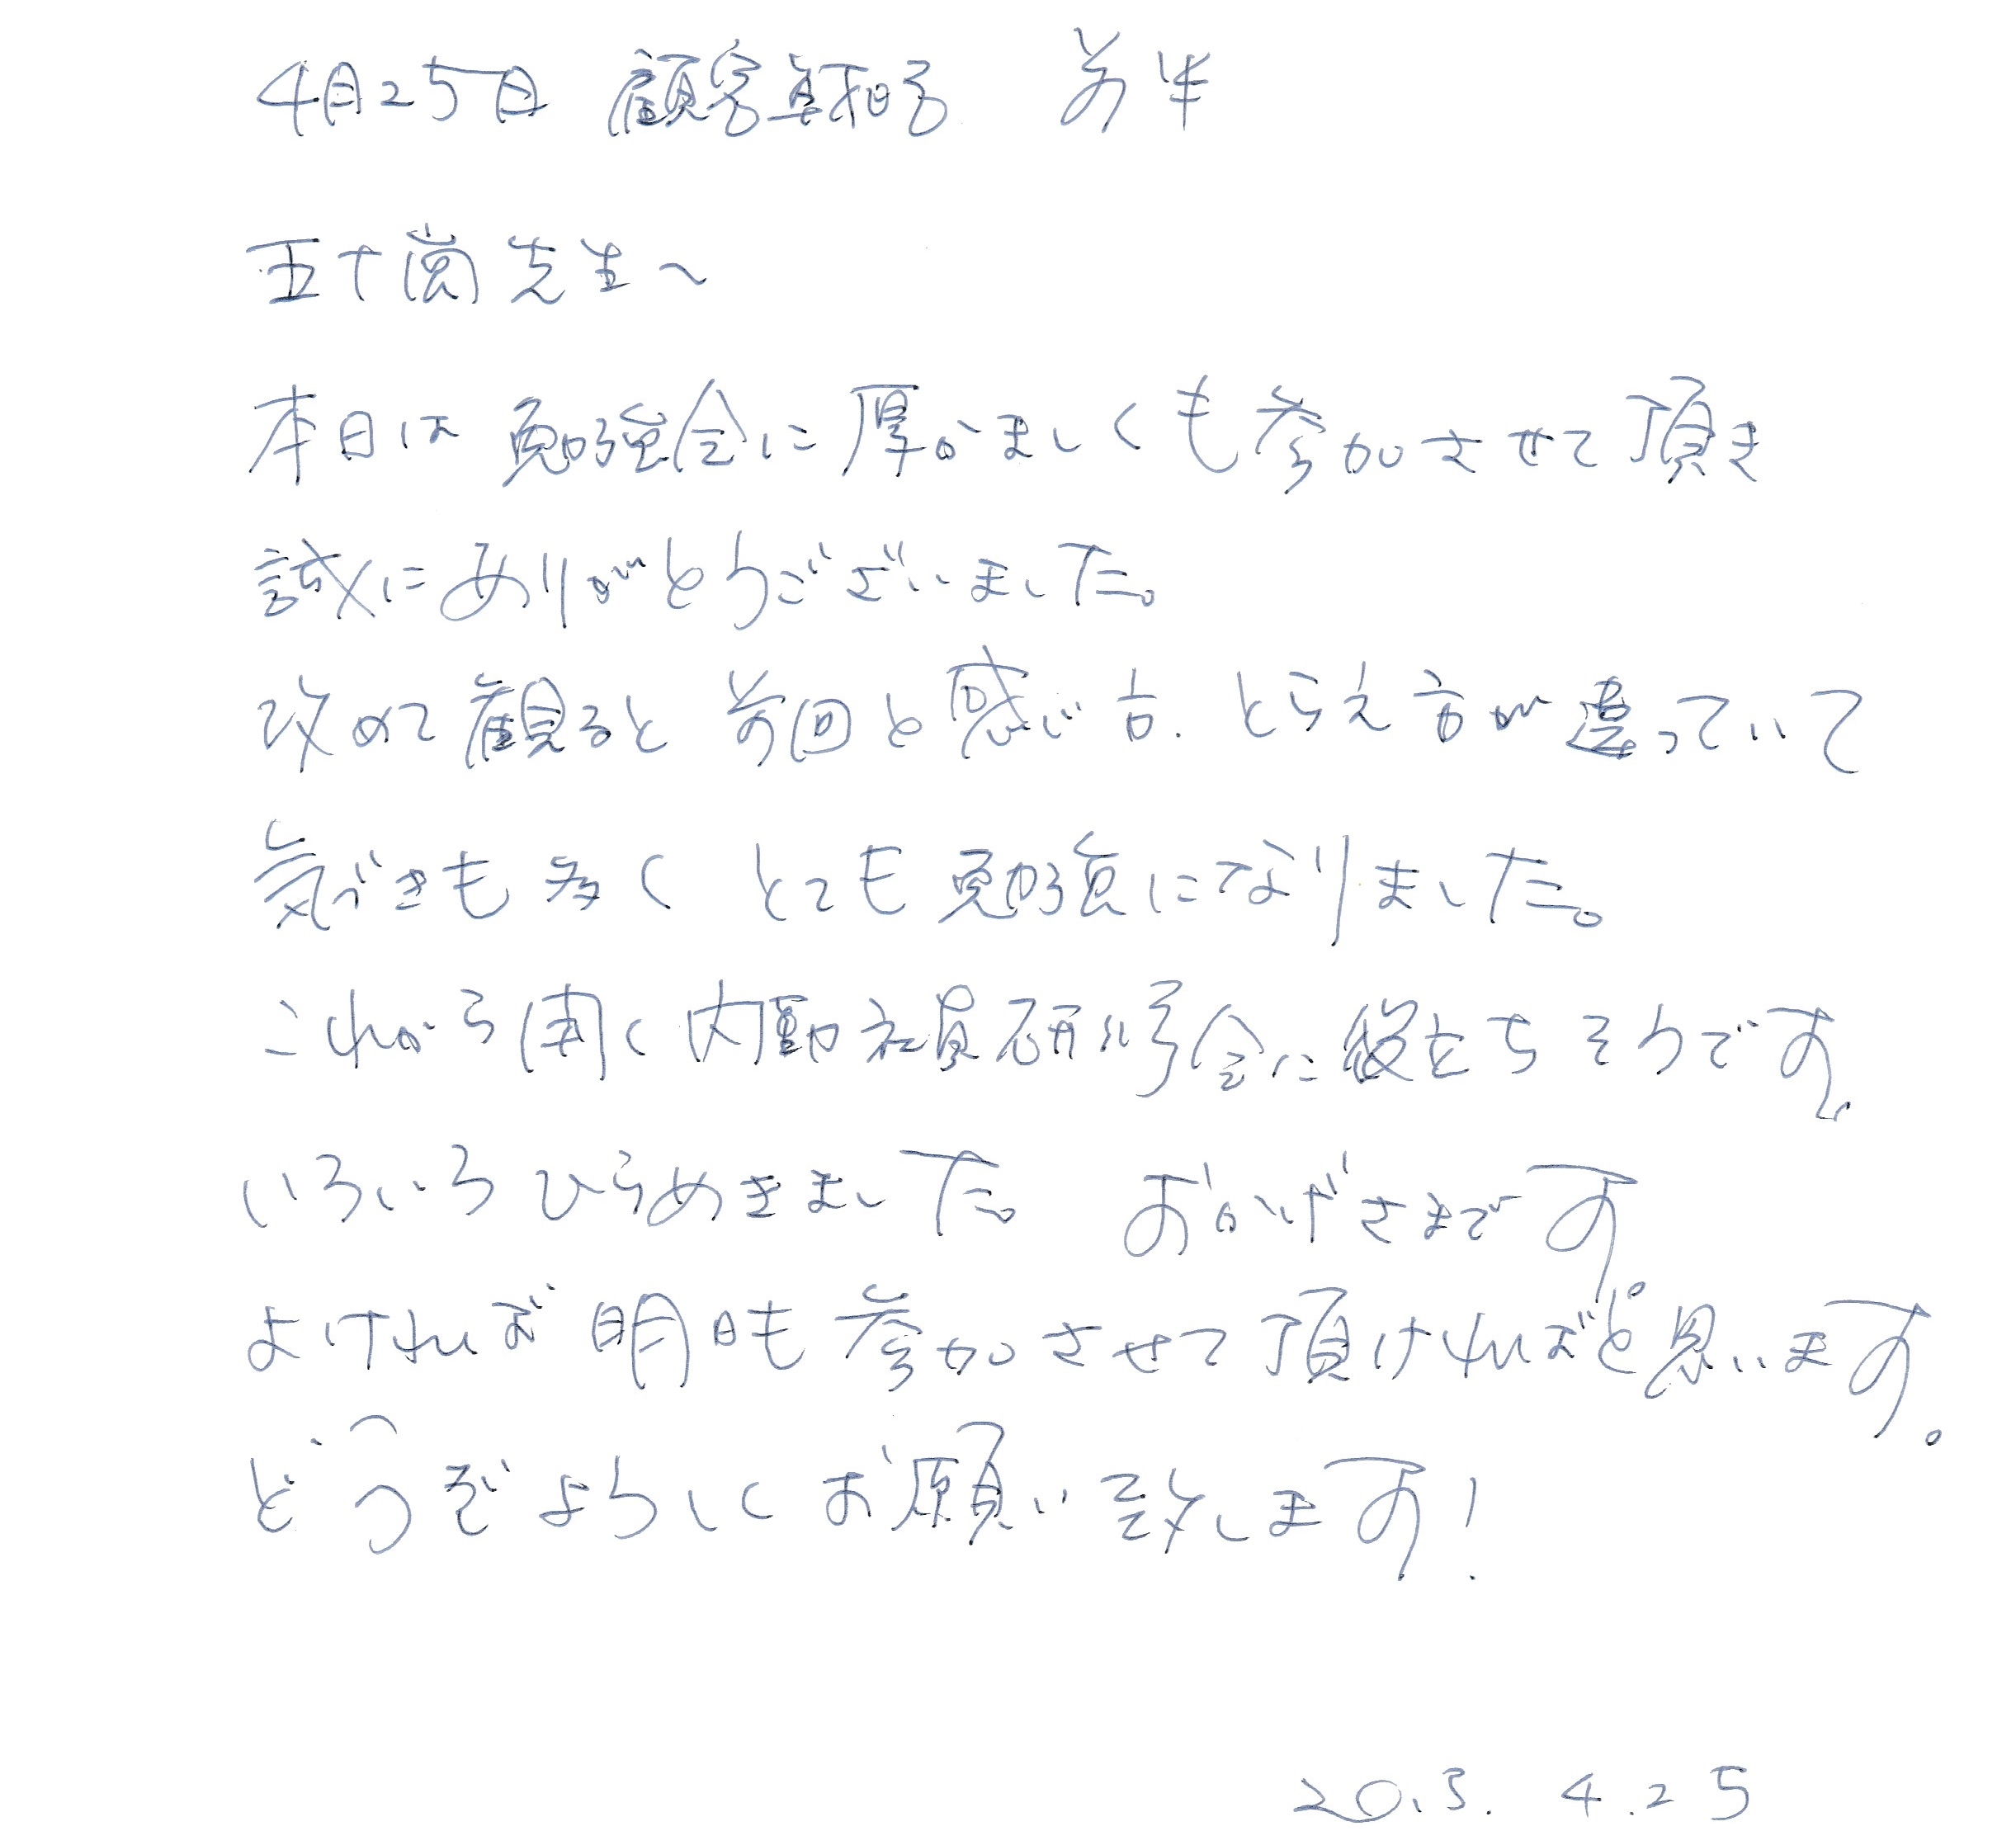 4月25日 顧客単拍る 前半
五十嵐先生へ
本日は勉強会に厚かましくも参加させて頂き
誠にありがとうございました。
改めて観ると前回と感じ方、とらえ方が違っていて
気づきも多くとても勉強になりました。
これから開く内勤社員研修会に役立ちそうです。
いろいろひらめきました。おかげさまです。
よければ明日も参加させて頂ければと思います。
どうぞよろしくお願い致します!
2013. 4.25